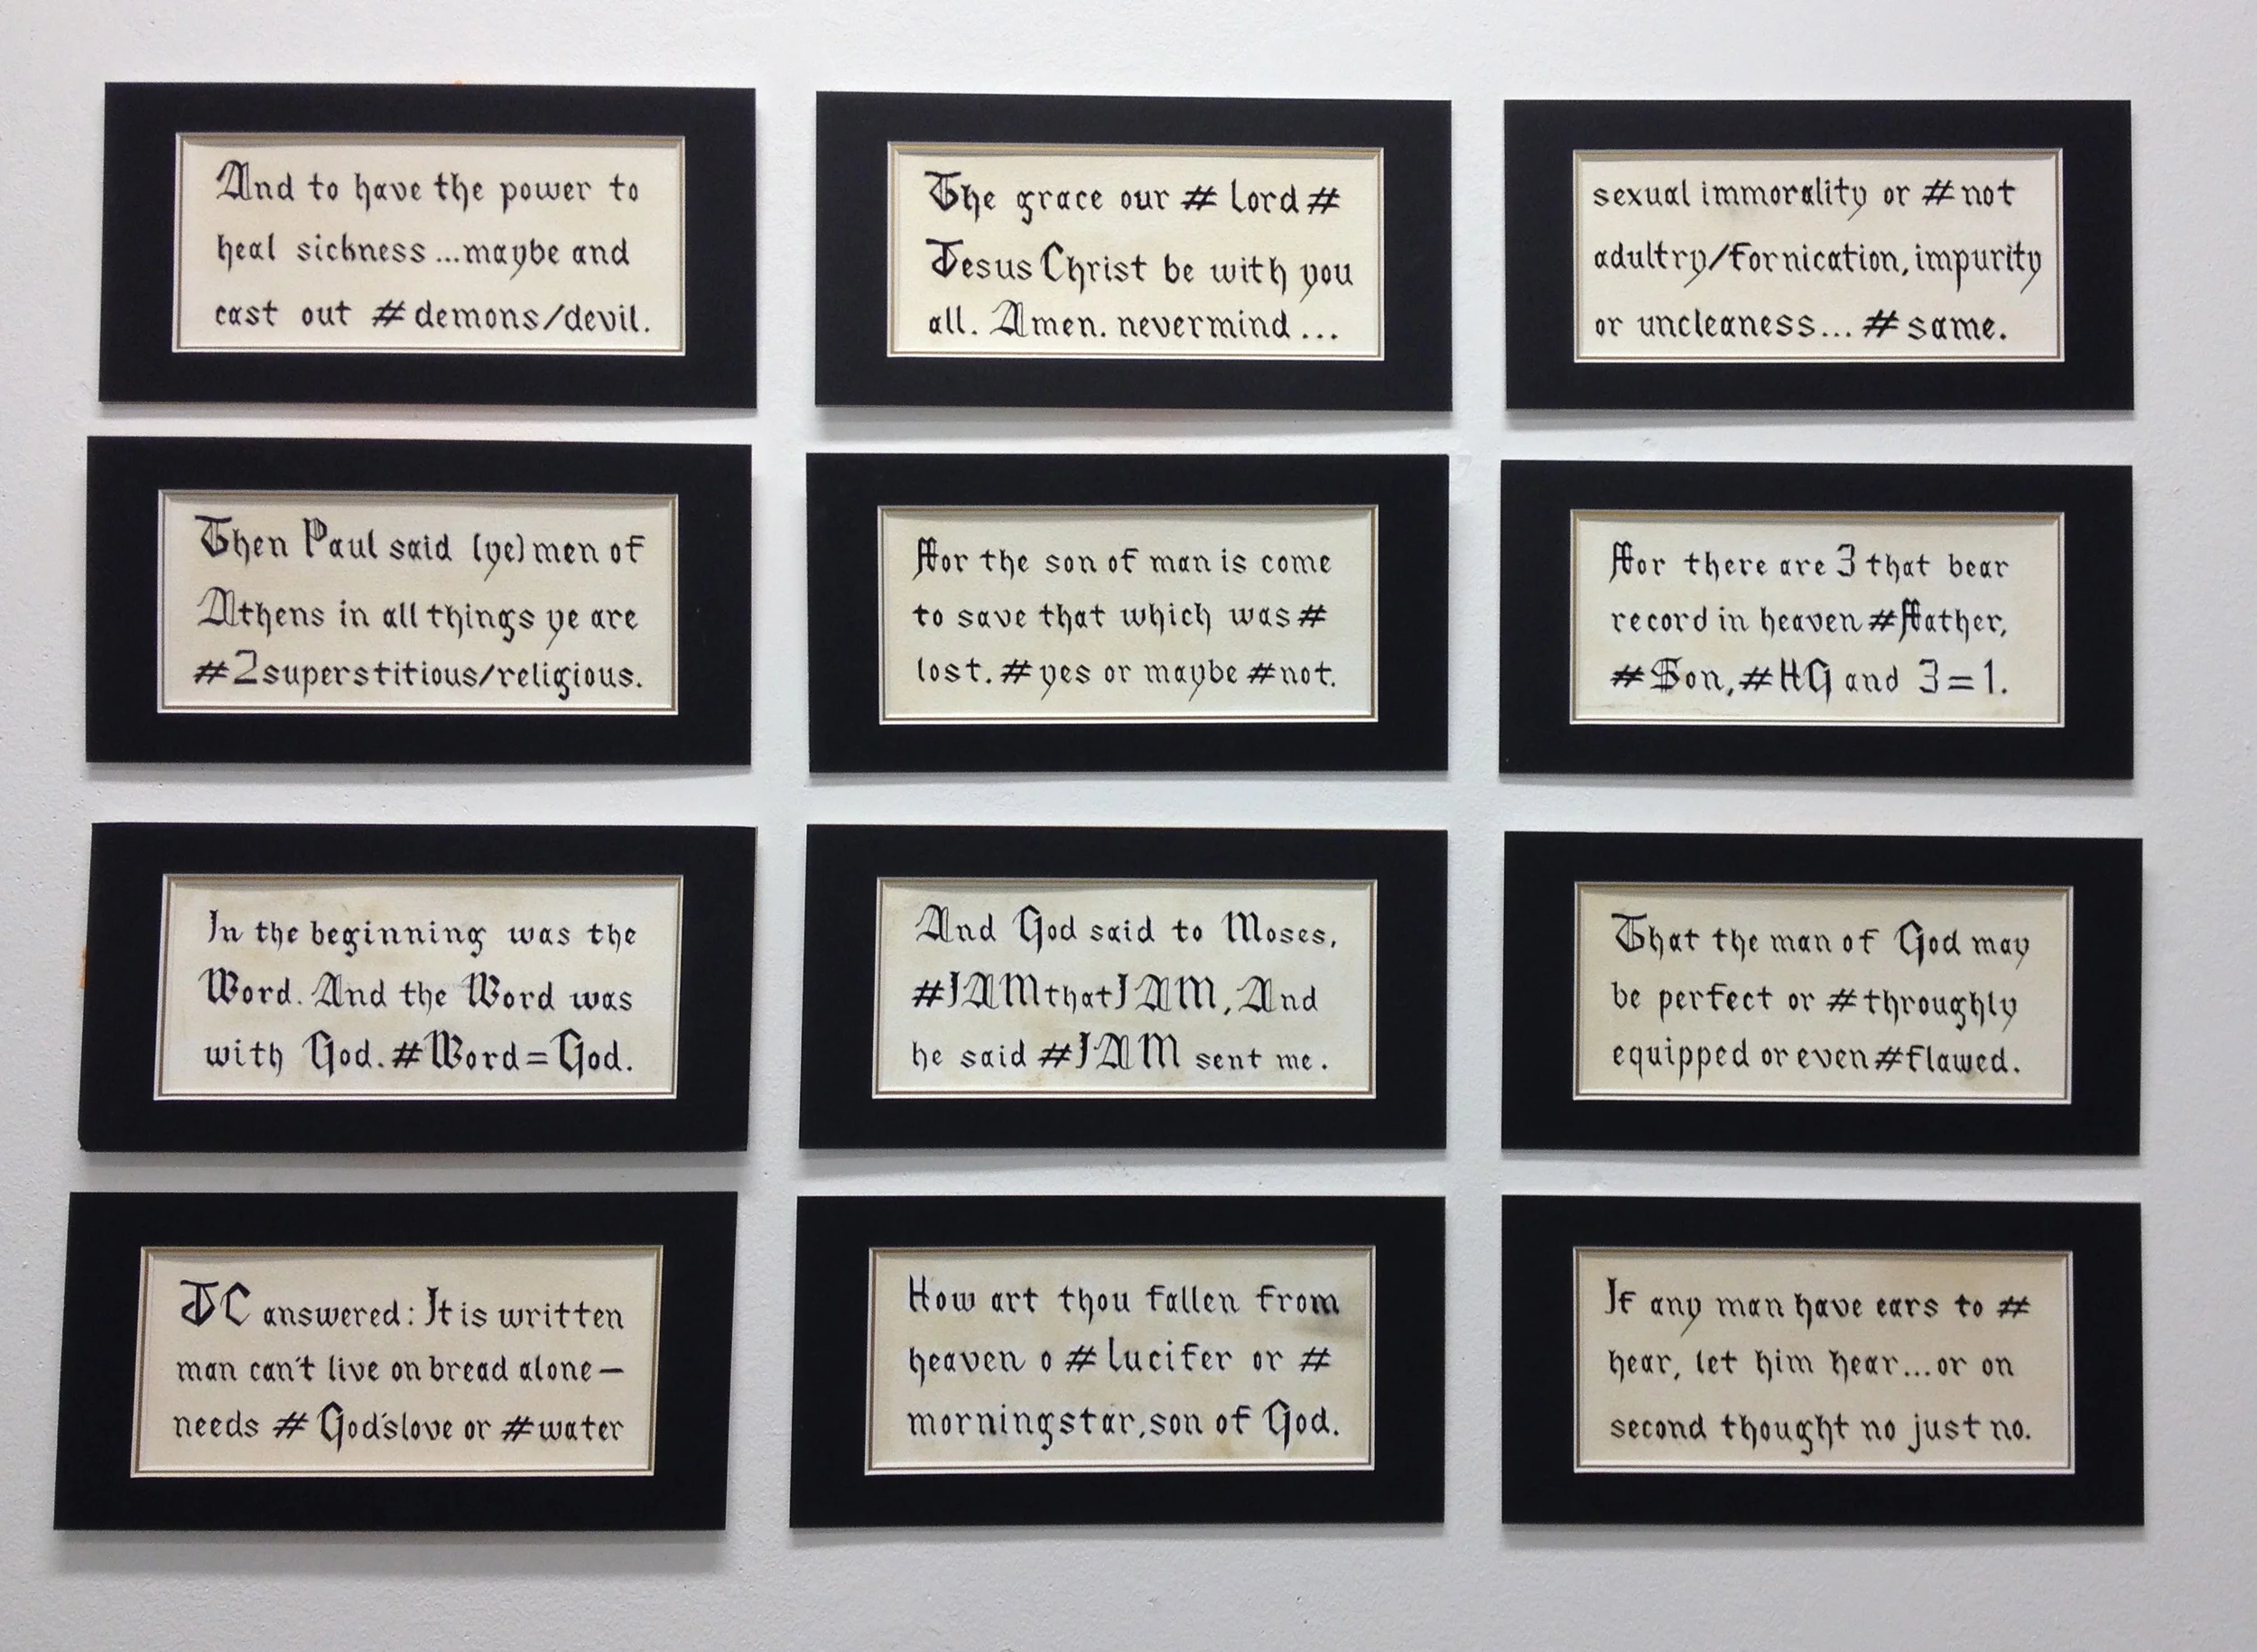 And to have the power to
heal sickness...maybe and
cast out # demons/devil.
The grace our # Lord #
Jesus Christ be with you
all. Amen. nevermind...
sexual immorality or # not
adultry/fornication, impurity
or uncleaness... # same.
Then Paul said (ye) men of
Athens in all things ye are
#2superstitious/religious.
For the son of man is come
to save that which was #
lost. # yes or maybe #not.
For there are 3 that bear
record in heaven #Father,
#Son, #HG and 3=1.
In the beginning was the
Word. And the Word was
with God. #Word=God.
And God said to Moses,
#IAMthatIAM, And
he said #IAM sent me.
That the man of God may
be perfect or #throughly
equipped or even #flawed.
JC answered: It is written
man can't live on bread alone—
needs # God'slove or #water
How art thou fallen from
heaven o # lucifer or #
morningstar, son of God.
If any man have ears to #
hear, let him hear...or on
second thought no just no.